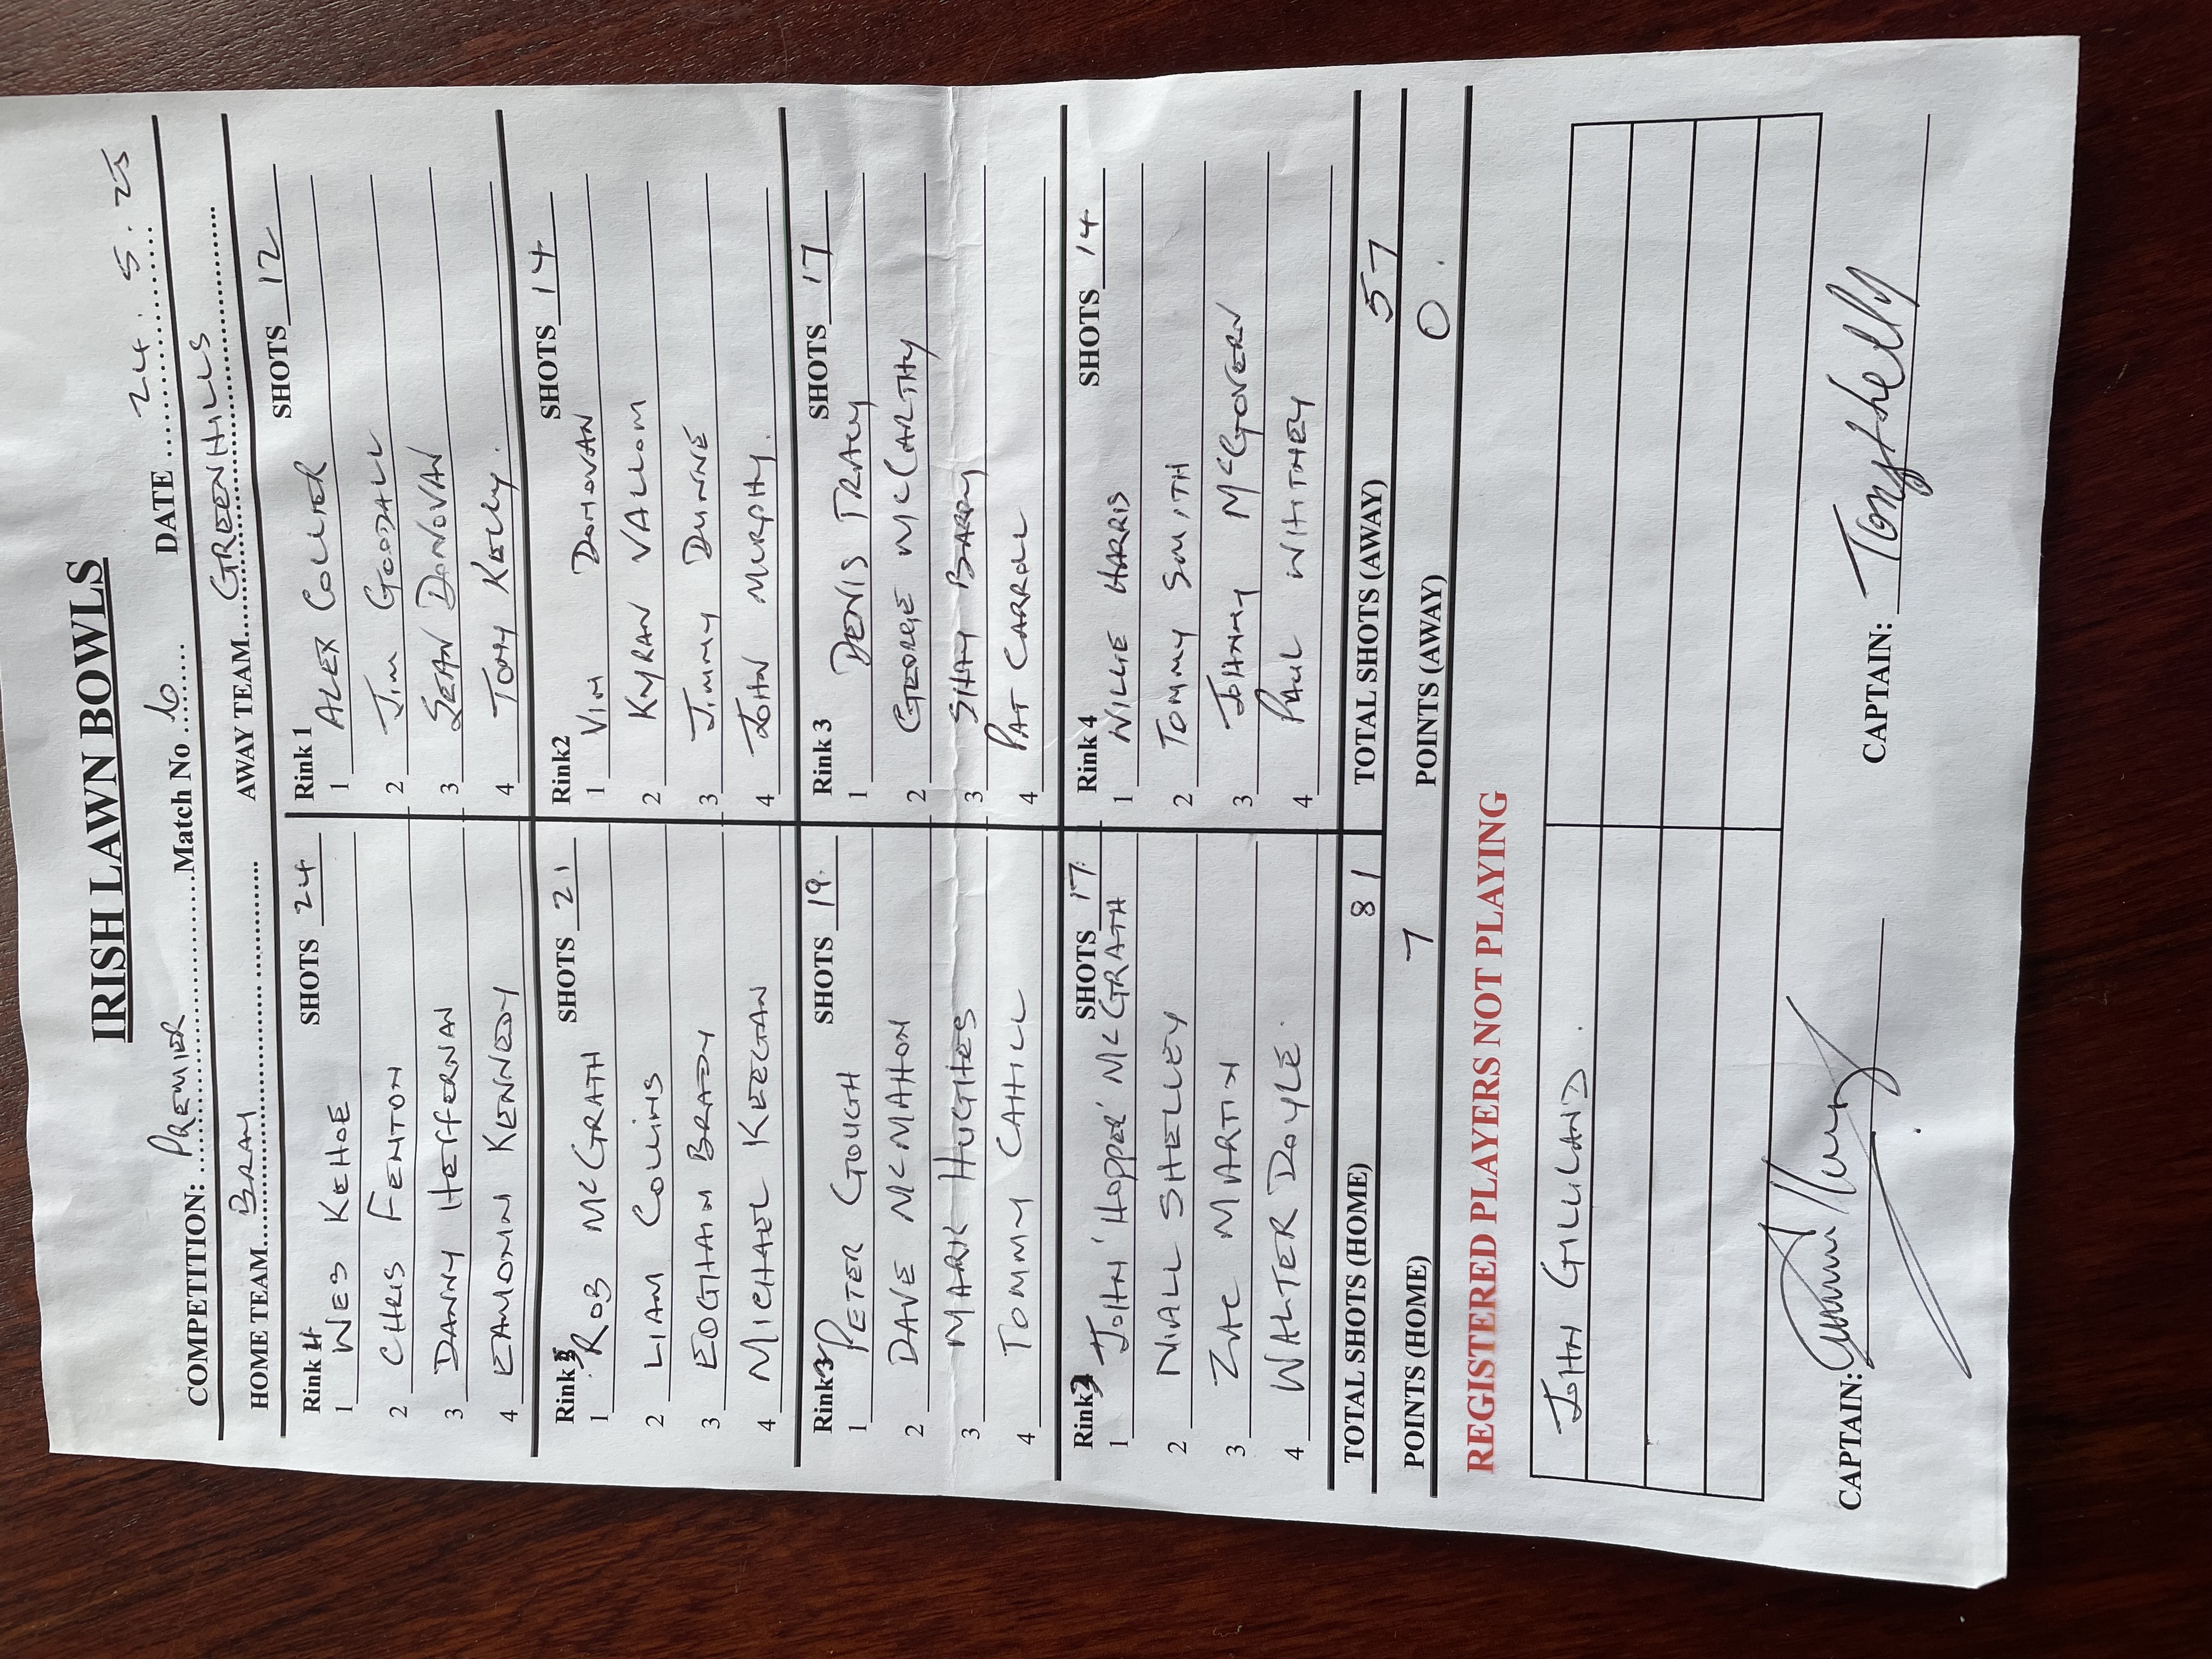 IRISH LAWN BOWLS
COMPETITION: PREMIER Match No 6 DATE 24.5.25
HOME TEAM BRAY AWAY TEAM GREENHILLS
Rink SHOTS 24
1 WES KEHOE
2 CHRIS FENTON
3 DANNY HEFFERNAN
4 EAMONN KENNEDY
Rink 1 SHOTS 12
1 ALEX COLLIER
2 JIM GOODALL
3 SEAN DONOVAN
4 TONY KELLY.
Rink SHOTS 21
1 ROB McGRATH
2 LIAM COLLINS
3 EOGHAN BRADY
4 MICHAEL KEEGAN
Rink2 SHOTS 14
1 VIN DONOVAN
2 KYRAN VALLOM
3 JIMMY DUNNE
4 JOHN MURPHY.
Rink 3 SHOTS 19.
1 PETER GOUGH
2 DAVE McMAHON
3 MARK HUGHES
4 TOMMY CAHILL
Rink 3 SHOTS 17
1 DENIS TRACY
2 GEORGE McCARTHY
3 SHAY BARRY
4 PAT CARROLL
Rink SHOTS 17.
1 JOHN 'HOPPER' McGRATH
2 NIALL SHELLEY
3 ZAC MARTIN
4 WALTER DOYLE.
Rink 4 SHOTS 14
1 WILLIE HARRIS
2 TOMMY SMITH
3 JOHNNY McGOVERN
4 PAUL WHITNEY
TOTAL SHOTS (HOME) 81 TOTAL SHOTS (AWAY) 57
POINTS (HOME) 7 POINTS (AWAY) 0.
REGISTERED PLAYERS NOT PLAYING
JOHN GILLILAND.
CAPTAIN: CAPTAIN: Tony Kelly